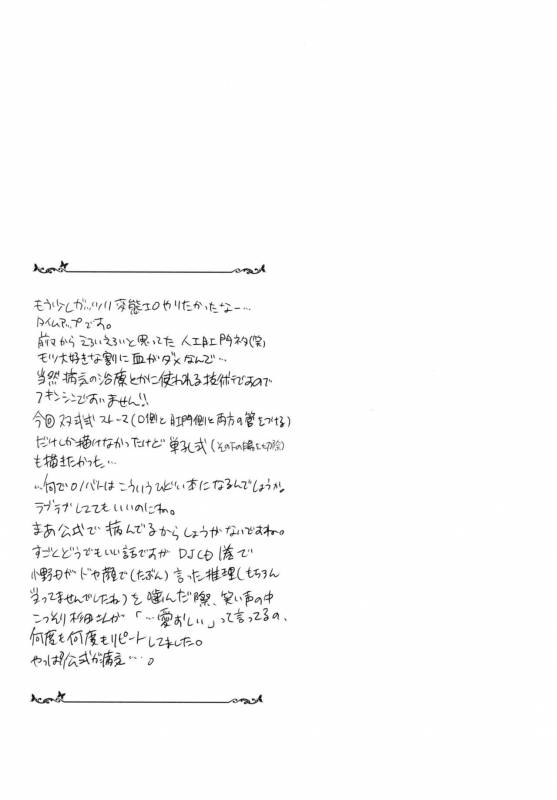 もう少しガッツリ変態エロやりたかったなー…
タイムアップです。
前々からえろいえろいと思ってた人工肛門ネタ(笑)
モツ大好きな割に血がダメなんで…
当然病気の治療とかに使われる技術ですので
フキンシンでおいません!!
今回双孔式ストーマ(口側と肛門側と両方の管をつける)
だけしか描けなかったけど単孔式(その下の腸を切除)
も描きたかった…
…何でロノバトはこういうひどい本になるんでしょうか。
ラブラブしててもいいのにね。
まあ公式で病んでるからしょうがないですね。
すごくどうでもいい話ですがDJCD 1巻で
小野田がドヤ顔で(たぶん)言った推理(もちろん
当ってませんでしたね)を噛んだ際、笑い声の中
こっそり杉田さんが「…愛おしい」って言ってるの、
何度も何度もリピートしてました。
やっぱ公式が病気…。